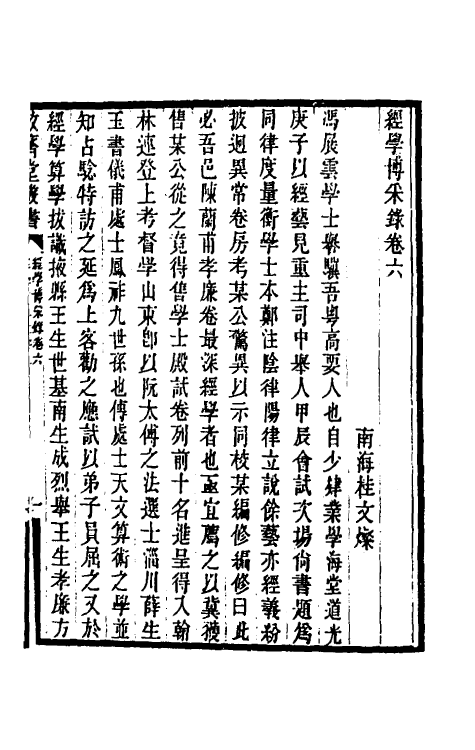 經學博采錄卷六
南海桂文燦
馮展雲學士譽驥吾粵高要人也自少肄業學海堂道光
庚子以經藝見重主司中舉人甲辰會試次場尙書題爲
同律度量衡學士本鄭注陰律陽律立說餘藝亦經義紛
披迥異常卷房考某公驚異以示同校某編修編修曰此
必吾邑陳蘭甫孝廉卷最深經學者也亟宜薦之以冀獲
售某公從之竟得售學士殿試卷列前十名進呈得入翰
林連登上考督學山東郎以阮太傅之法選士淄川薛生
玉書儀甫處士鳳祚九世孫也傳處士天文算術之學並
知占驗特訪之延爲上客勸之應試以弟子員屈之又於
經學算學拔識掖縣王生世基南生成烈舉王生孝廉方
經學博采錄卷六
一